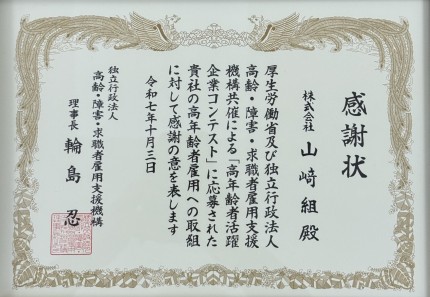 感謝状
株式会社 山﨑組殿
厚生労働省及び独立行政法人
高齢・障害・求職者雇用支援
機構共催による「高年齢者活躍
企業コンテスト」に応募された
貴社の高年齢者雇用への取組
に対して感謝の意を表します
令和七年十月三日
独立行政法人
高齢・障害・求職者雇用支援機構
理事長 輪島忍